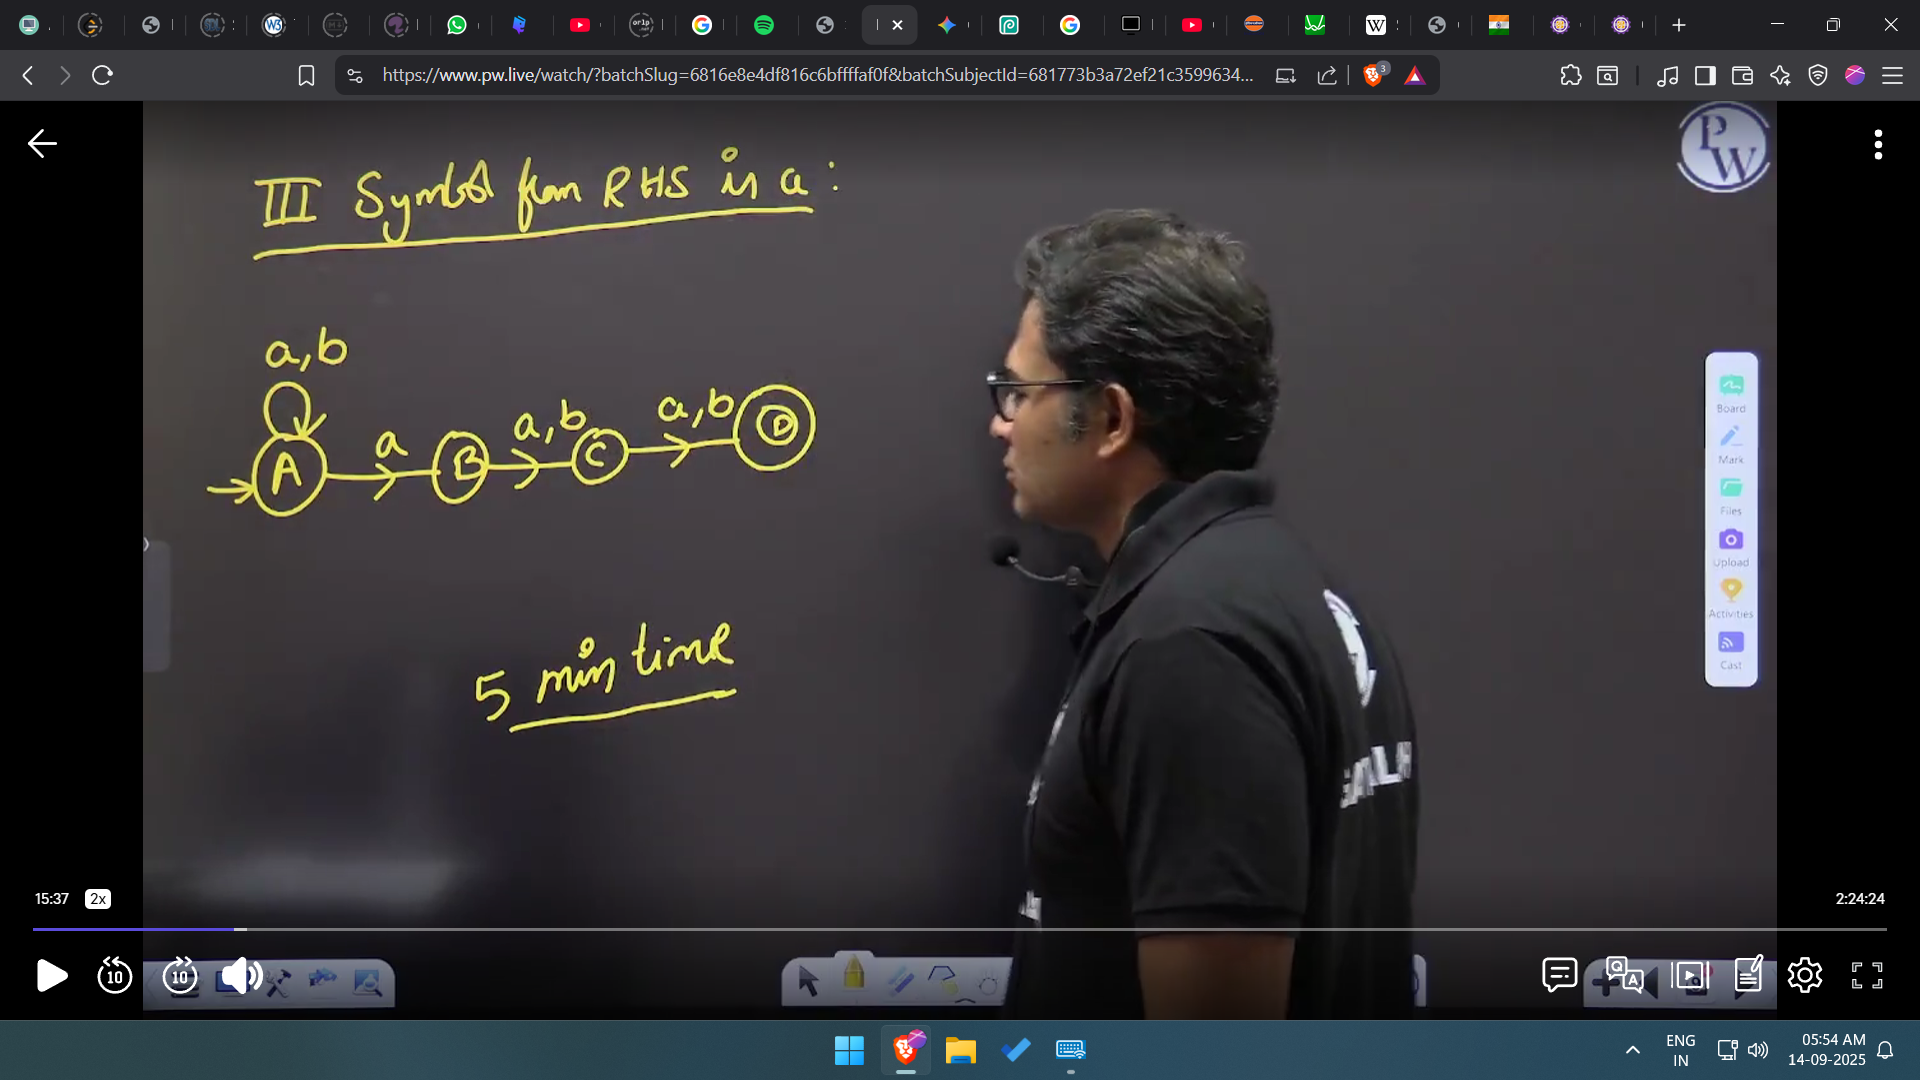 https://www.pw.live/watch/?batchSlug=6816e8e4df816c6bffffaf0f&batchSubjectId=681773b3a72ef21c3599634...
3
PW
III Symbol from RHS is a:
a,b
a
a,b
a,b
A
B
C
D
5 min time
Board
Mark
Files
Upload
Activities
Cast
15:37
2x
2:24:24
10
10
ENG
IN
05:54 AM
14-09-2025